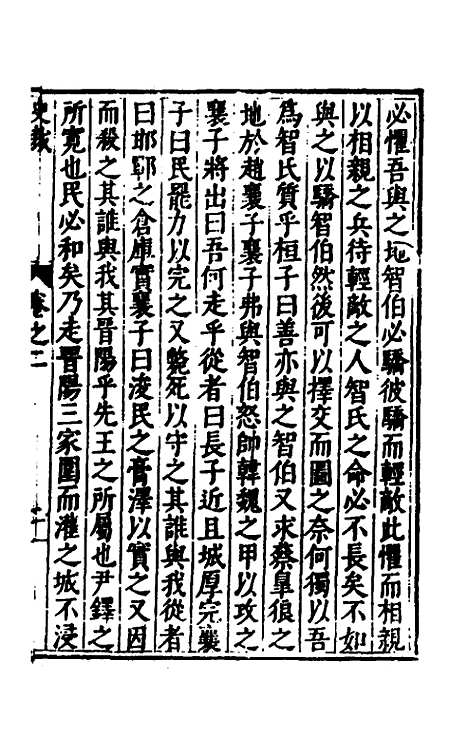 必懼吾與之地智伯必驕彼驕而輕敵此懼而相親
以相親之兵待輕敵之人智氏之命必不長矣不如
與之以驕智伯然後可以擇交而圖之奈何獨以吾
爲智氏質乎桓子曰善亦與之智伯又求蔡臯狼之
地於趙襄子襄子弗與智伯怒帥韓魏之甲以攻之
襄子將出曰吾何走乎從者曰長子近且城厚完襄
子曰民罷力以完之又斃死以守之其誰與我從者
曰邯鄲之倉庫實襄子曰浚民之膏澤以實之又因
而殺之其誰與我其晉陽乎先王之所屬也尹鐸之
所寬也民必和矣乃走晉陽三家圍而灌之城不浸
卷之二